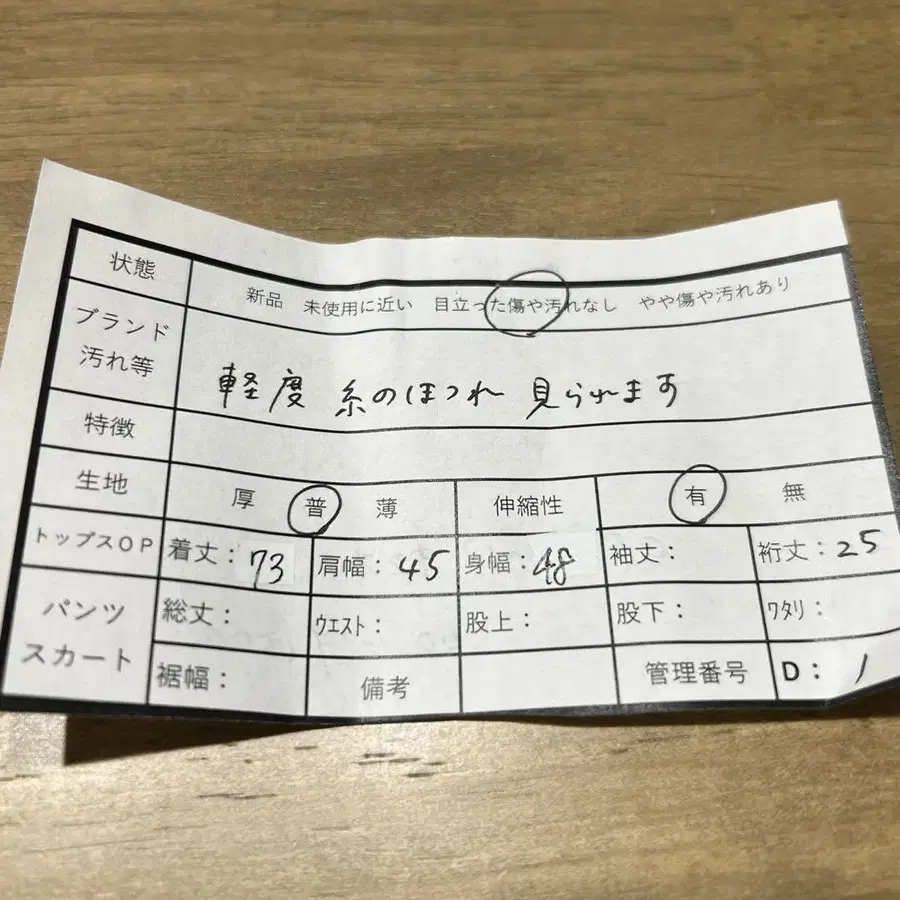 状態 新品 未使用に近い 目立った傷や汚れなし やや傷や汚れあり
ブランド
汚れ等 軽度 糸のほつれ 見られます
特徴
生地 厚 普 薄 伸縮性 有 無
トップスOP 着丈: 73 肩幅: 45 身幅: 48 袖丈: 裄丈: 25
パンツ 総丈: ウエスト: 股上: 股下: ワタリ:
スカート 裾幅: 備考 管理番号 D: 1